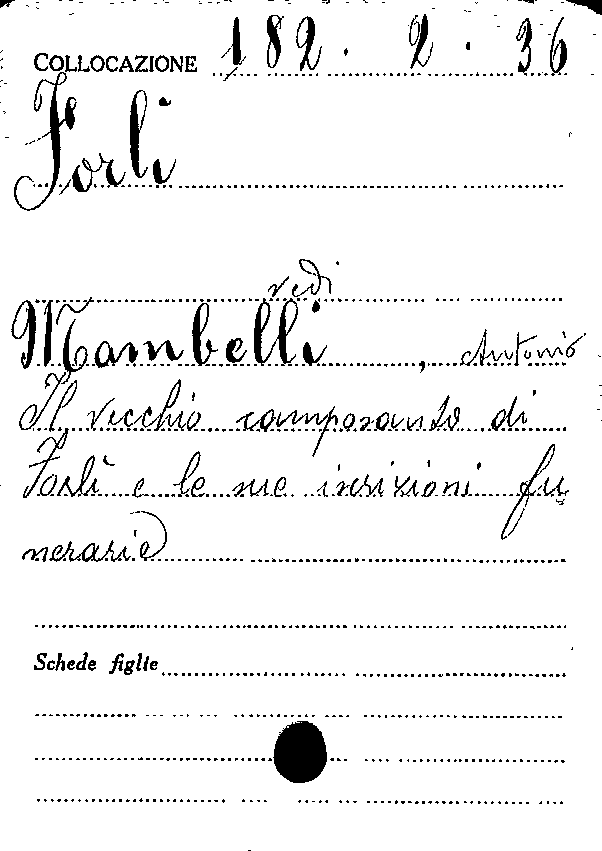 COLLOCAZIONE 182 . 2 . 36
Forlì
vedi
Mambelli, Antonio
Il vecchio camposanto di
Forlì e le sue iscrizioni fu
nerarie
Schede figlie